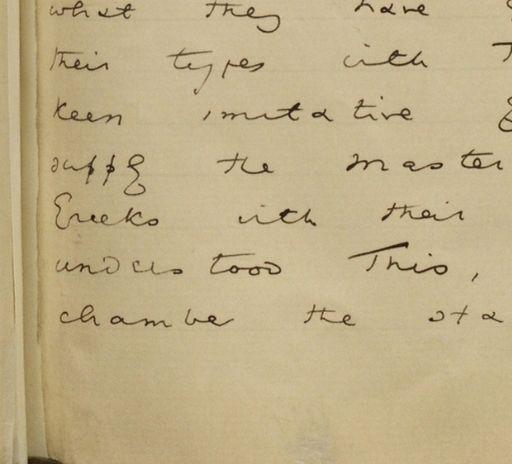 what they have
their types with
keen imitative
supply the master
Greeks with their
understood This,
chamber the sta